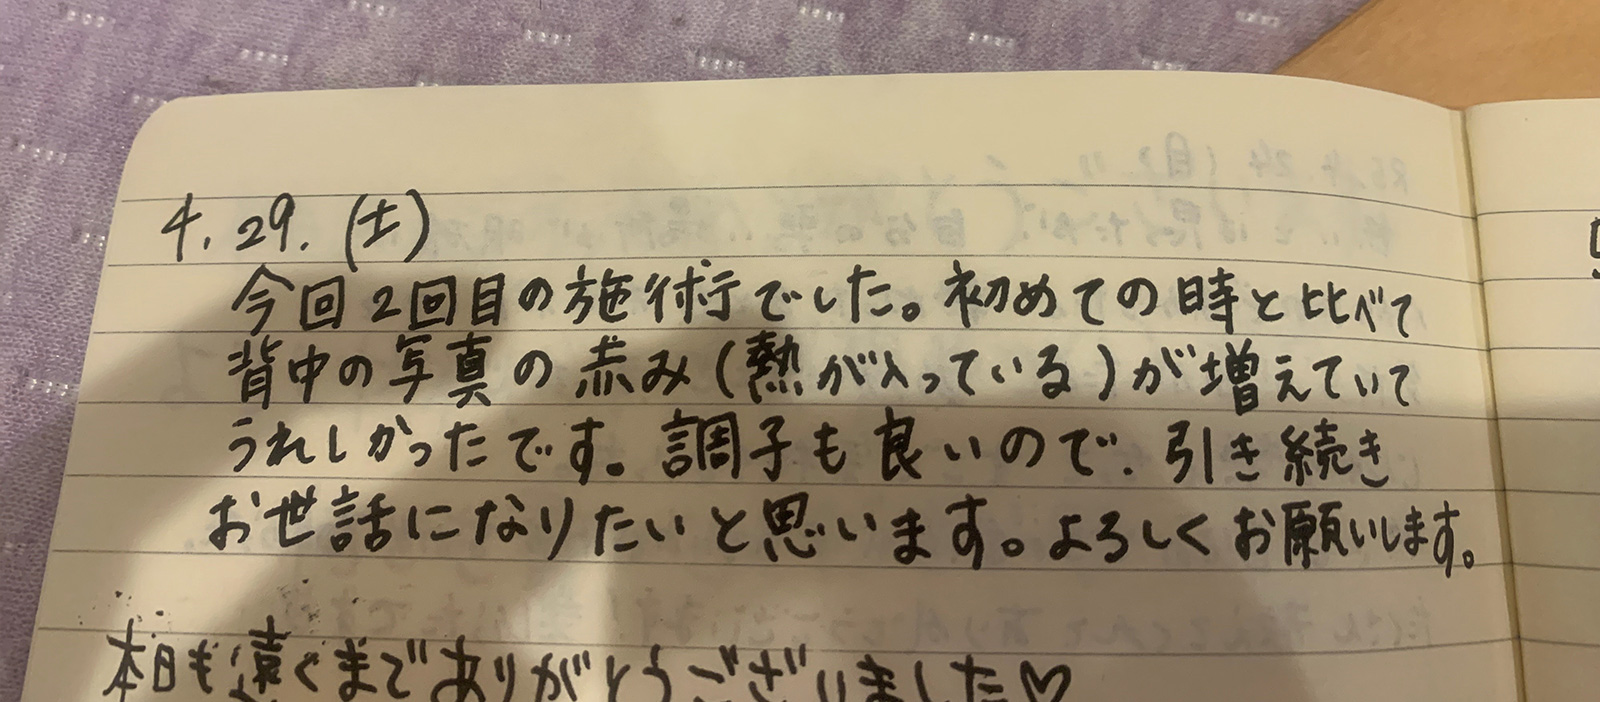 4. 29. (土)
今回2回目の施術でした。初めての時と比べて
背中の写真の赤み(熱が入っている)が増えていて
うれしかったです。調子も良いので、引き続き
お世話になりたいと思います。よろしくお願いします。
本日も遠くまでありがとうございました♡